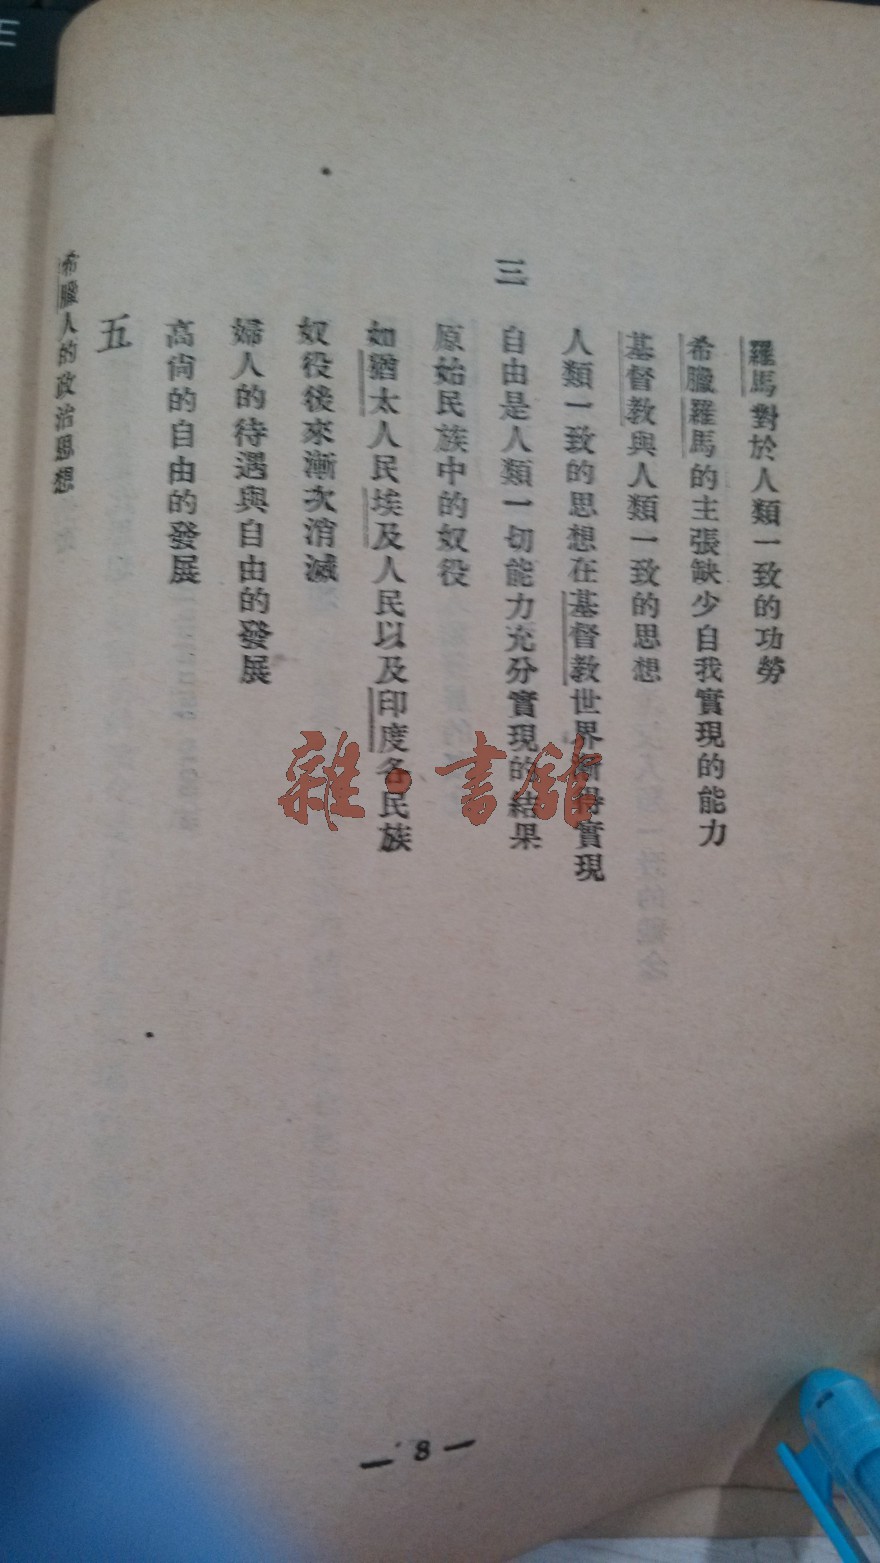 羅馬對於人類一致的功勞
希臘羅馬的主張缺少自我實現的能力
基督教與人類一致的思想
人類一致的思想在基督教世界漸得實現
三
自由是人類一切能力充分實現的結果
原始民族中的奴役
如猶太人民埃及人民以及印度各民族
奴役後來漸次消滅
婦人的待遇與自由的發展
高尚的自由的發展
五
希臘人的政治思想
— 8 —
雜·書館